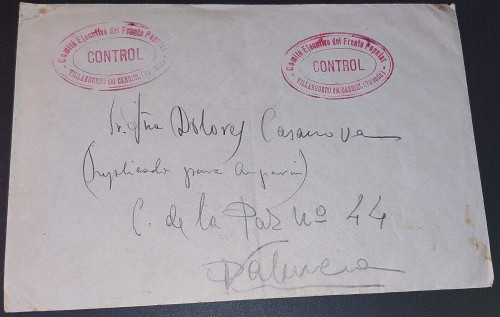 Comité Ejecutivo del Frente Popular
CONTROL
VILLARGORDO del CABRIEL (Valencia)
Comité Ejecutivo del Frente Popular
CONTROL
VILLARGORDO del CABRIEL (Valencia)
Dña Dolores Casanova
(Suplicado para Amparín)
C. de la Paz nº 44
Valencia